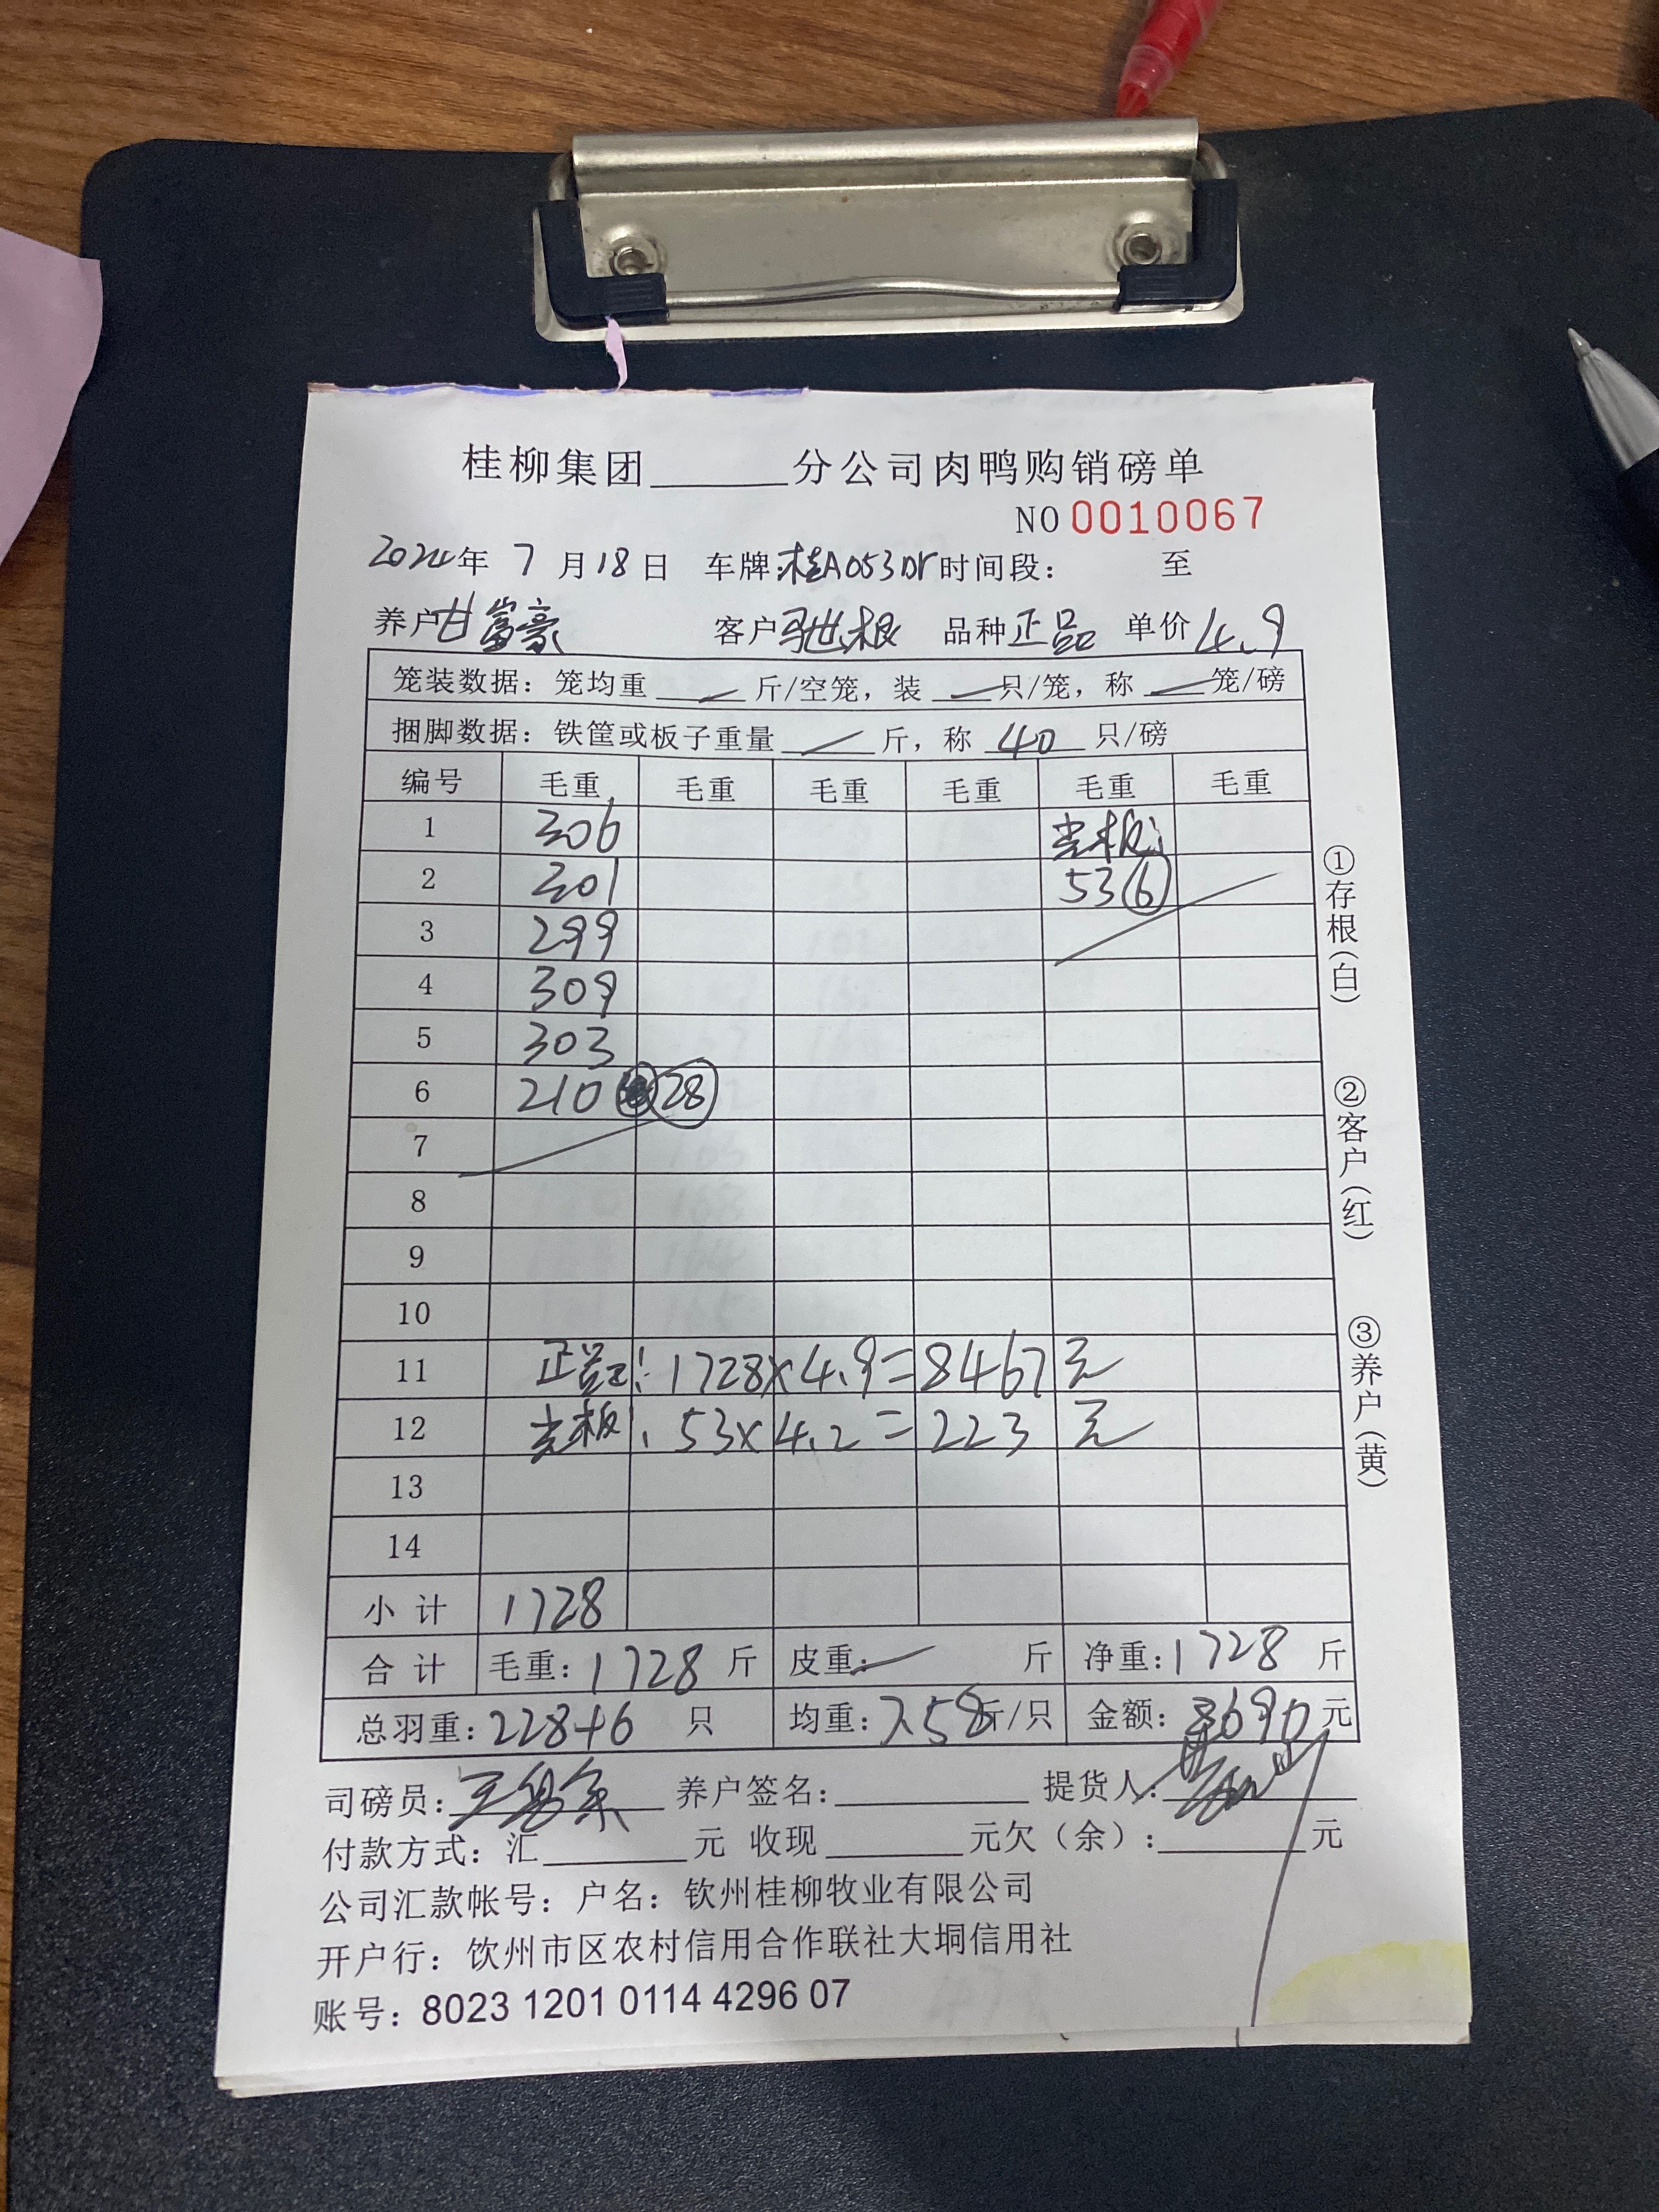 桂柳集团______分公司肉鸭购销磅单
NO 0010067
2024年 7 月 18 日 车牌:桂A053Dr 时间段: 至
养户甘富豪 客户 驰根 品种 正品 单价 4.9
笼装数据:笼均重 — 斤/空笼,装 — 只/笼,称 — 笼/磅
捆脚数据:铁筐或板子重量 — 斤,称 40 只/磅
编号 毛重 毛重 毛重 毛重 毛重 毛重
1 306 光板:
2 301 53 6
3 299
4 309
5 303
6 210 28
7
8
9
10
11 正品: 1728×4.9=8467 元
12 光板: 53×4.2=223 元
13
14
小计 1728
合计 毛重:1728 斤 皮重:— 斤 净重:1728 斤
总羽重:228+6 只 均重:7.58斤/只 金额:8690元
司磅员: 养户签名: 提货人:
付款方式:汇______元 收现______元欠(余):______元
公司汇款帐号:户名:钦州桂柳牧业有限公司
开户行:饮州市区农村信用合作联社大垌信用社
账号:8023 1201 0114 4296 07
①存根(白)
②客户(红)
③养户(黄)